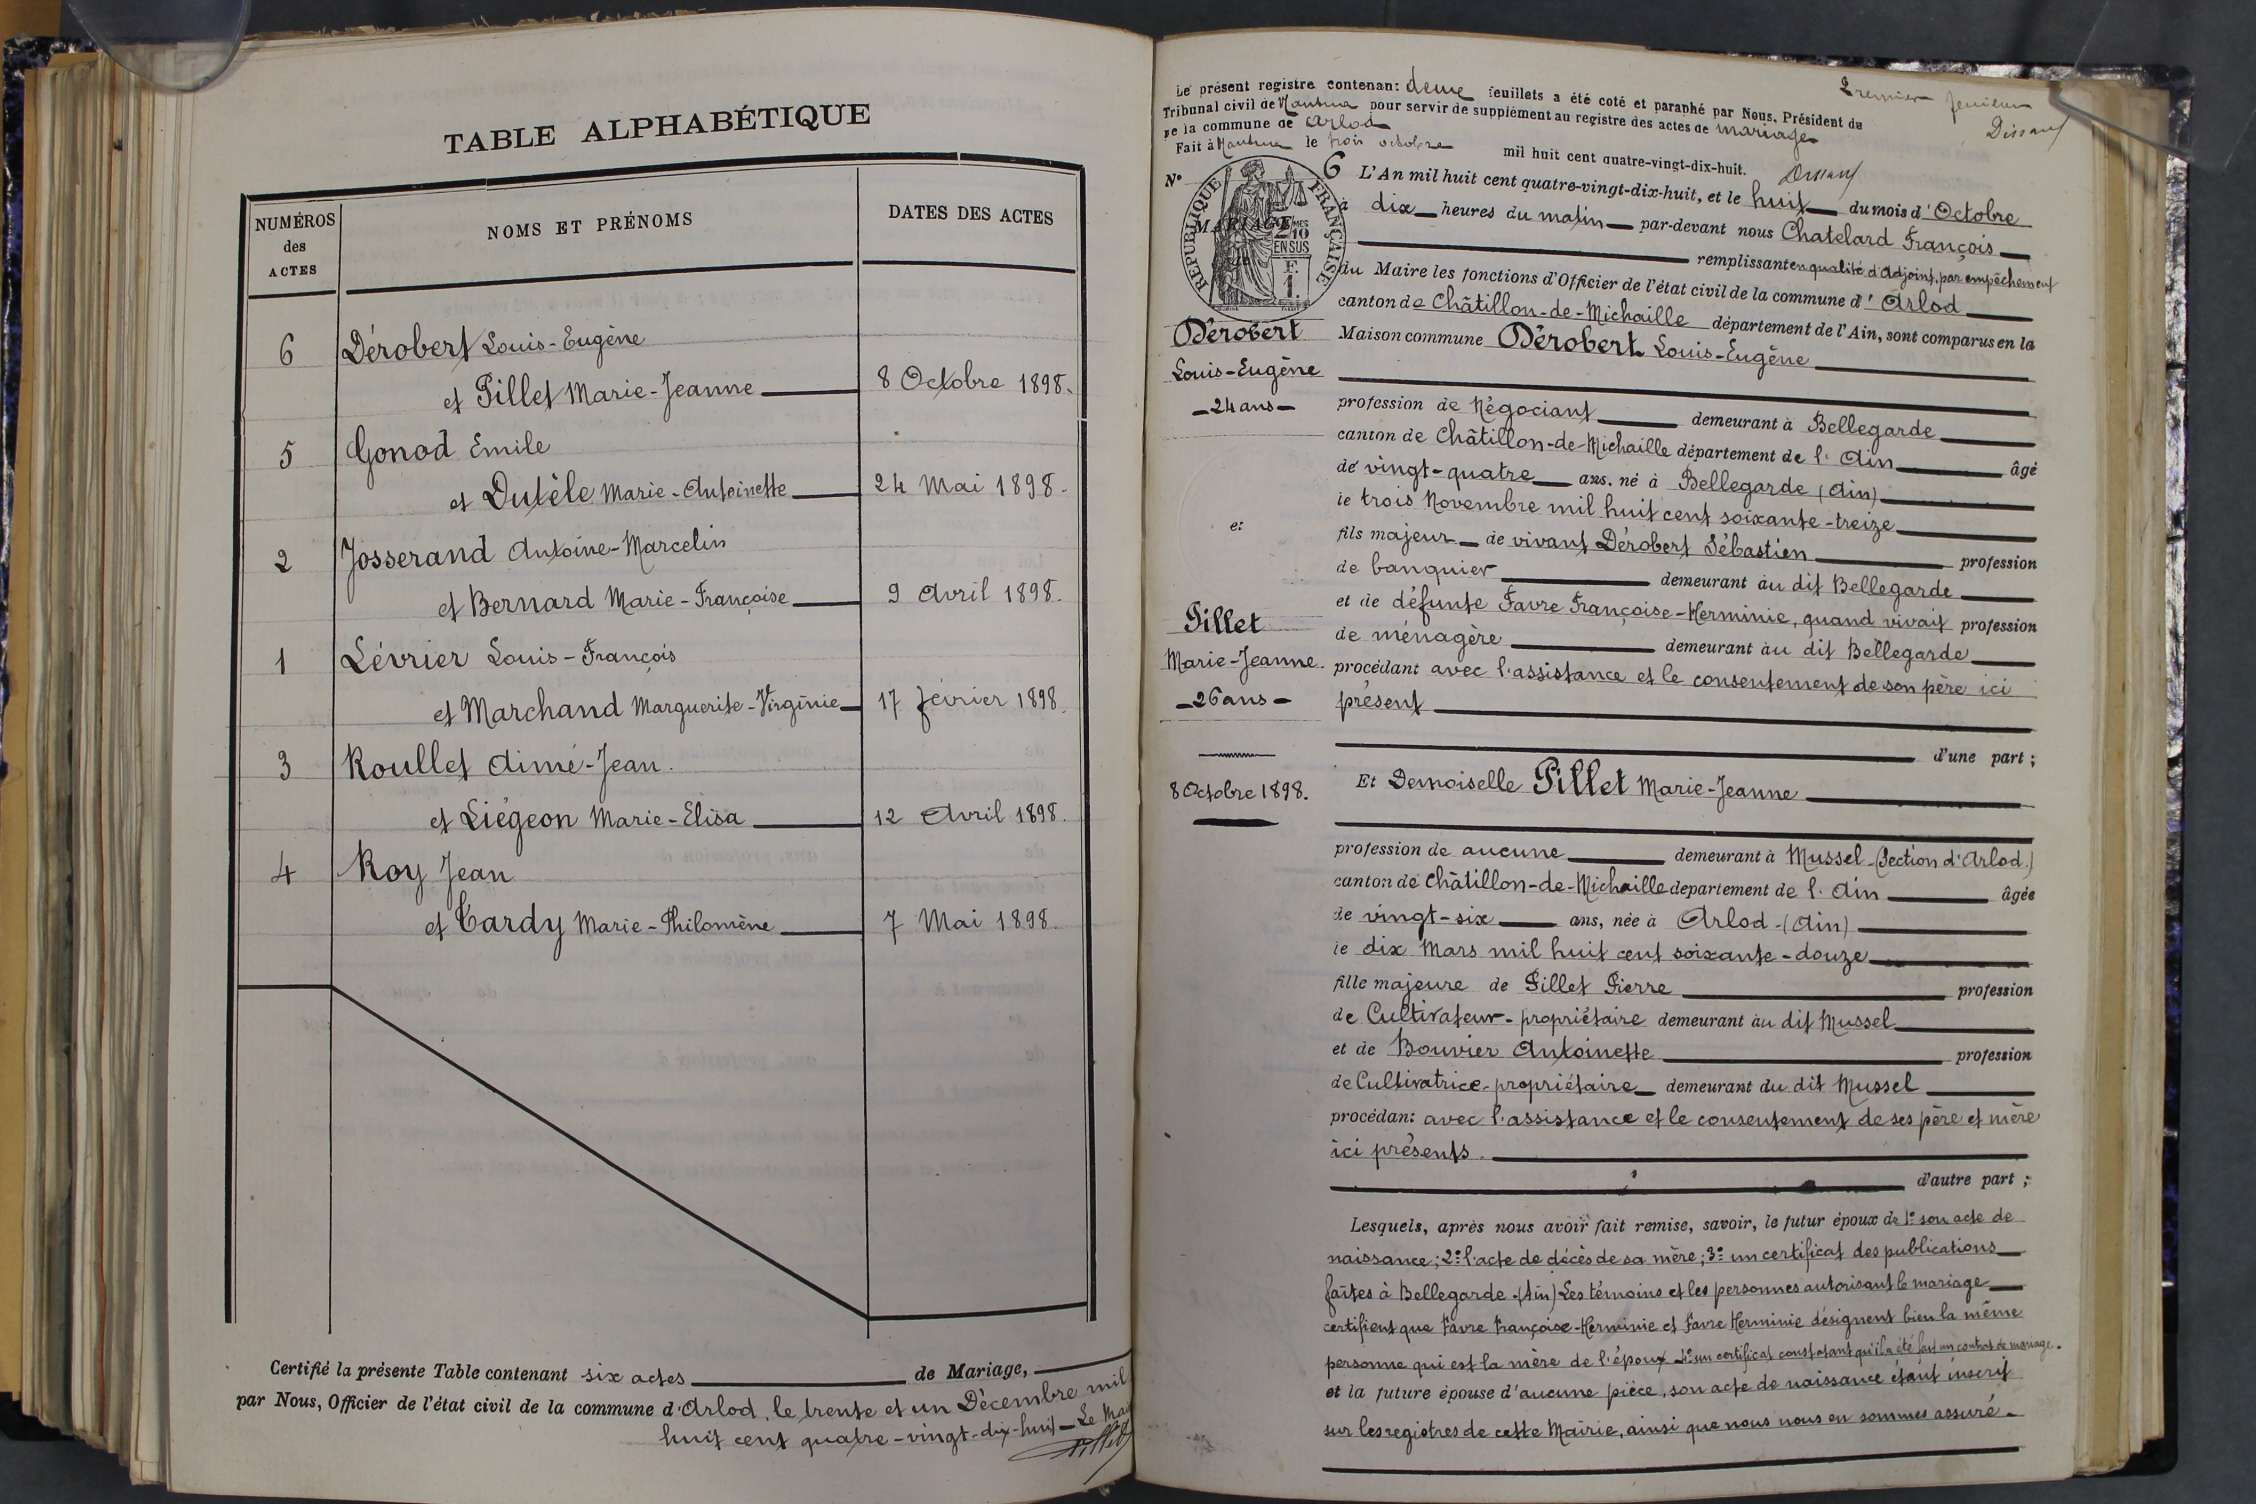 TABLE ALPHABÉTIQUE
NUMÉROS des ACTES
NOMS ET PRÉNOMS
DATES DES ACTES
6 Dérobert Louis-Eugène
et Pillet Marie-Jeanne 8 Octobre 1898.
5 Gonod Emile
et Dutèle Marie-Antoinette 24 Mai 1898.
2 Josserand Antoine-Marcelin
et Bernard Marie-Françoise 9 Avril 1898.
1 Lévrier Louis-François
et Marchand Marguerite-Virginie 17 février 1898.
3 Roullet Aimé-Jean.
et Liégeon Marie-Elisa 12 Avril 1898.
4 Roy Jean
et Tardy Marie-Philomène 7 Mai 1898.
Certifié la présente Table contenant six actes de Mariage,
par Nous, Officier de l'état civil de la commune d'Arlod, le trente et un Décembre mil
huit cent quatre-vingt-dix-huit - Le Mai
Pillet
Premier feuillet
Dissard
Le présent registre contenant deux feuillets a été coté et paraphé par Nous, Président du
Tribunal civil de Nantua pour servir de supplément au registre des actes de mariage
de la commune de Arlod
Fait à Nantua le trois octobre mil huit cent quatre-vingt-dix-huit.
Dissard
N° 6
RÉPUBLIQUE FRANÇAISE
MARIAGE
2/10
EN SUS
F.
1.
Dérobert
Louis-Eugène
-24 ans-
et
Pillet
Marie-Jeanne.
-26 ans-
8 Octobre 1898.
L'An mil huit cent quatre-vingt-dix-huit, et le huit du mois d'Octobre
à dix heures du matin par-devant nous Chatelard François
remplissant en qualité d'Adjoint, par empêchement
du Maire les fonctions d'Officier de l'état civil de la commune d'Arlod
canton de Châtillon-de-Michaille département de l'Ain, sont comparus en la
Maison commune Dérobert Louis-Eugène
profession de Négociant demeurant à Bellegarde
canton de Châtillon-de-Michaille département de l'Ain âgé
de vingt-quatre ans, né à Bellegarde (Ain)
le trois Novembre mil huit cent soixante-treize
fils majeur de vivant Dérobert Sébastien profession
de banquier demeurant au dit Bellegarde
et de défunte Favre Françoise-Herminie, quand vivait profession
de ménagère demeurant au dit Bellegarde
procédant avec l'assistance et le consentement de son père ici
présent
d'une part ;
Et Demoiselle Pillet Marie-Jeanne
profession de aucune demeurant à Mussel-(Section d'Arlod.)
canton de Châtillon-de-Michaille département de l'Ain âgée
de vingt-six ans, née à Arlod-(Ain)
le dix Mars mil huit cent soixante-douze
fille majeure de Pillet Pierre profession
de Cultivateur-propriétaire demeurant au dit Mussel
et de Bouvier Antoinette profession
de Cultivatrice-propriétaire demeurant du dit Mussel
procédant avec l'assistance et le consentement de ses père et mère
ici présents.
d'autre part ;
Lesquels, après nous avoir fait remise, savoir, le futur époux de 1° son acte de
naissance ; 2° l'acte de décès de sa mère ; 3° un certificat des publications
faites à Bellegarde-(Ain) Les témoins et les personnes autorisant le mariage
certifient que Favre Françoise-Herminie et Favre Herminie désignent bien la même
personne qui est la mère de l'époux 4° un certificat constatant qu'il a été fait un contrat de mariage.
et la future épouse d'aucune pièce, son acte de naissance étant inscrit
sur les registres de cette Mairie, ainsi que nous nous en sommes assuré.